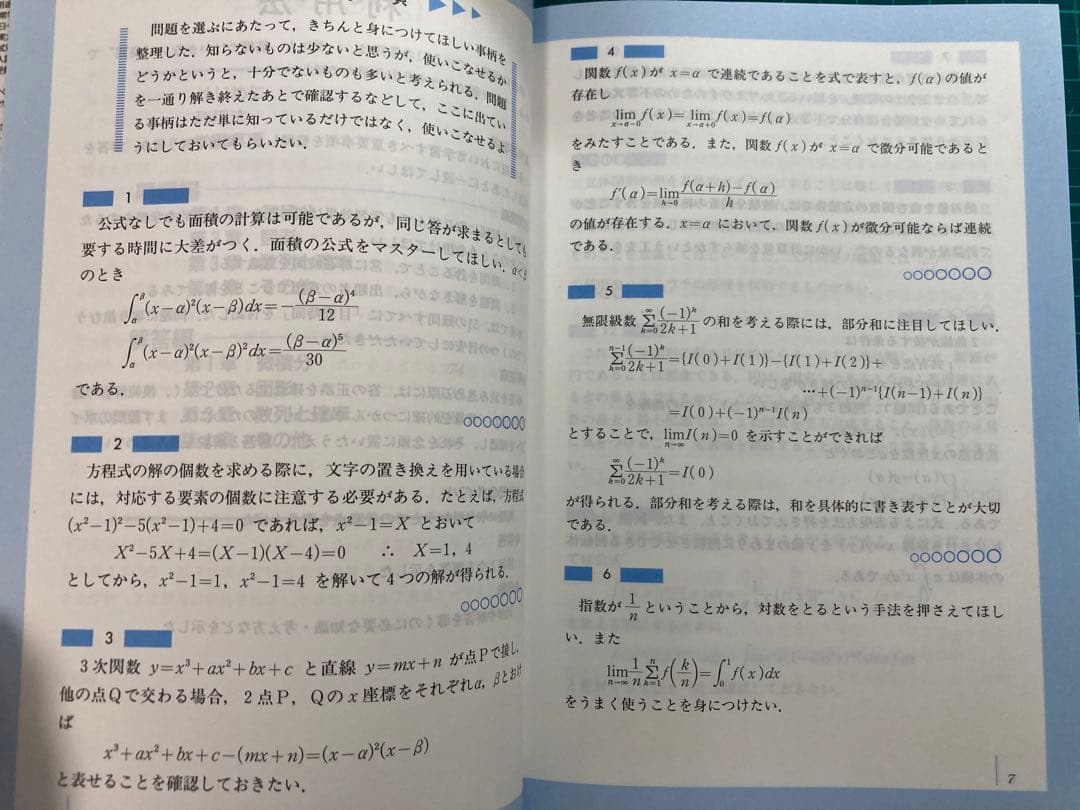 利用法
問題を選ぶにあたって，きちんと身につけてほしい事柄を
整理した．知らないものは少ないと思うが，使いこなせるか
どうかというと，十分でないものも多いと考えられる．問題
を一通り解き終えたあとで確認するなどして，ここに出てい
る事柄はただ単に知っているだけではなく，使いこなせるよ
うにしておいてもらいたい．
1
公式なしでも面積の計算は可能であるが，同じ答が求まるとしても
要する時間に大差がつく．面積の公式をマスターしてほしい．α<β
のとき
∫_α^β (x−α)²(x−β)dx=−(β−α)⁴/12
∫_α^β (x−α)²(x−β)²dx=(β−α)⁵/30
である．
2
方程式の解の個数を求める際に，文字の置き換えを用いている場合
には，対応する要素の個数に注意する必要がある．たとえば，方程式
(x²−1)²−5(x²−1)+4=0 であれば，x²−1=X とおいて
X²−5X+4=(X−1)(X−4)=0 ∴ X=1, 4
としてから，x²−1=1，x²−1=4 を解いて4つの解が得られる．
3
3次関数 y=x³+ax²+bx+c と直線 y=mx+n が点Pで接し，
他の点Qで交わる場合，2点P，Qのx座標をそれぞれα，βとおけ
ば
x³+ax²+bx+c−(mx+n)=(x−α)²(x−β)
と表せることを確認しておきたい．
4
関数 f(x) が x=α で連続であることを式で表すと，f(α) の値が
存在し
lim_{x→α−0} f(x)=lim_{x→α+0} f(x)=f(α)
をみたすことである．また，関数 f(x) が x=α で微分可能であると
き
f′(α)=lim_{h→0} (f(α+h)−f(α))/h
の値が存在する．x=α において，関数 f(x) が微分可能ならば連続
である．
5
無限級数 Σ_{k=0}^∞ (−1)^k/(2k+1) の和を考える際には，部分和に注目してほしい．
Σ_{k=0}^{n−1} (−1)^k/(2k+1)={I(0)+I(1)}−{I(1)+I(2)}+
…+(−1)^{n−1}{I(n−1)+I(n)}
=I(0)+(−1)^{n−1}I(n)
とすることで，lim_{n→∞} I(n)=0 を示すことができれば
Σ_{k=0}^∞ (−1)^k/(2k+1)=I(0)
が得られる．部分和を考える際は，和を具体的に書き表すことが大切
である．
6
指数が 1/n ということから，対数をとるという手法を押さえてほし
い．また
lim_{n→∞} 1/n Σ_{k=1}^n f(k/n)=∫_0^1 f(x)dx
をうまく使うことを身につけたい．
7